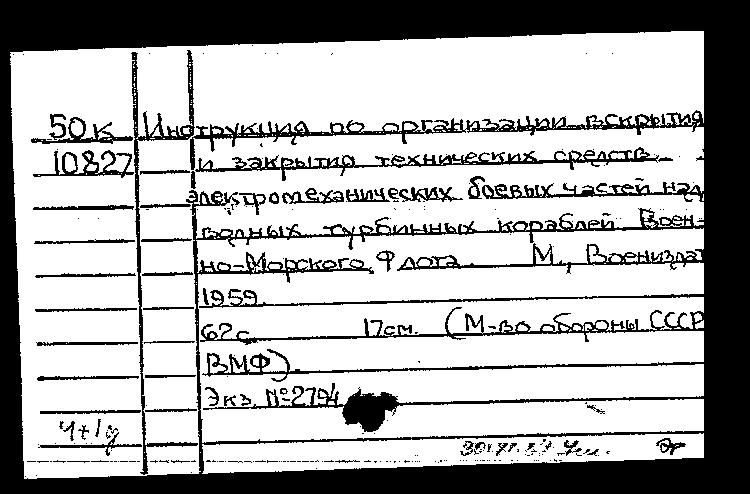 50к Инструкция по организации вскрытия
10827 и закрытия технических средств
электромеханических боевых частей над-
водных турбинных кораблей Воен-
но-Морского Флота. М., Воениздат
1959.
62с. 17см. (М-во обороны СССР
ВМФ).
Экз. №2794
4+1д